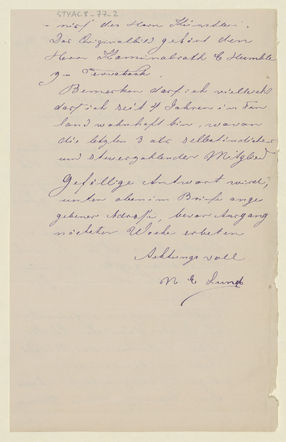 STYAC8-77-2
nisch des Herrn Künstler.
Das Originalbild gehört dem
Herr Kammerrath C
Bemerken darf ich vielleicht
daß ich seit 4 Jahren in Fin
land wohnhaft bin, wovon
die letzten 3 als selbständiger
und steuerzahlender Mitglied
Gefällige Antwort wird,
unter oben im Briefe ange
gebener Adresse, bevor Ausgang
nächster Woche erbeten
Achtungsvoll
N E Lund